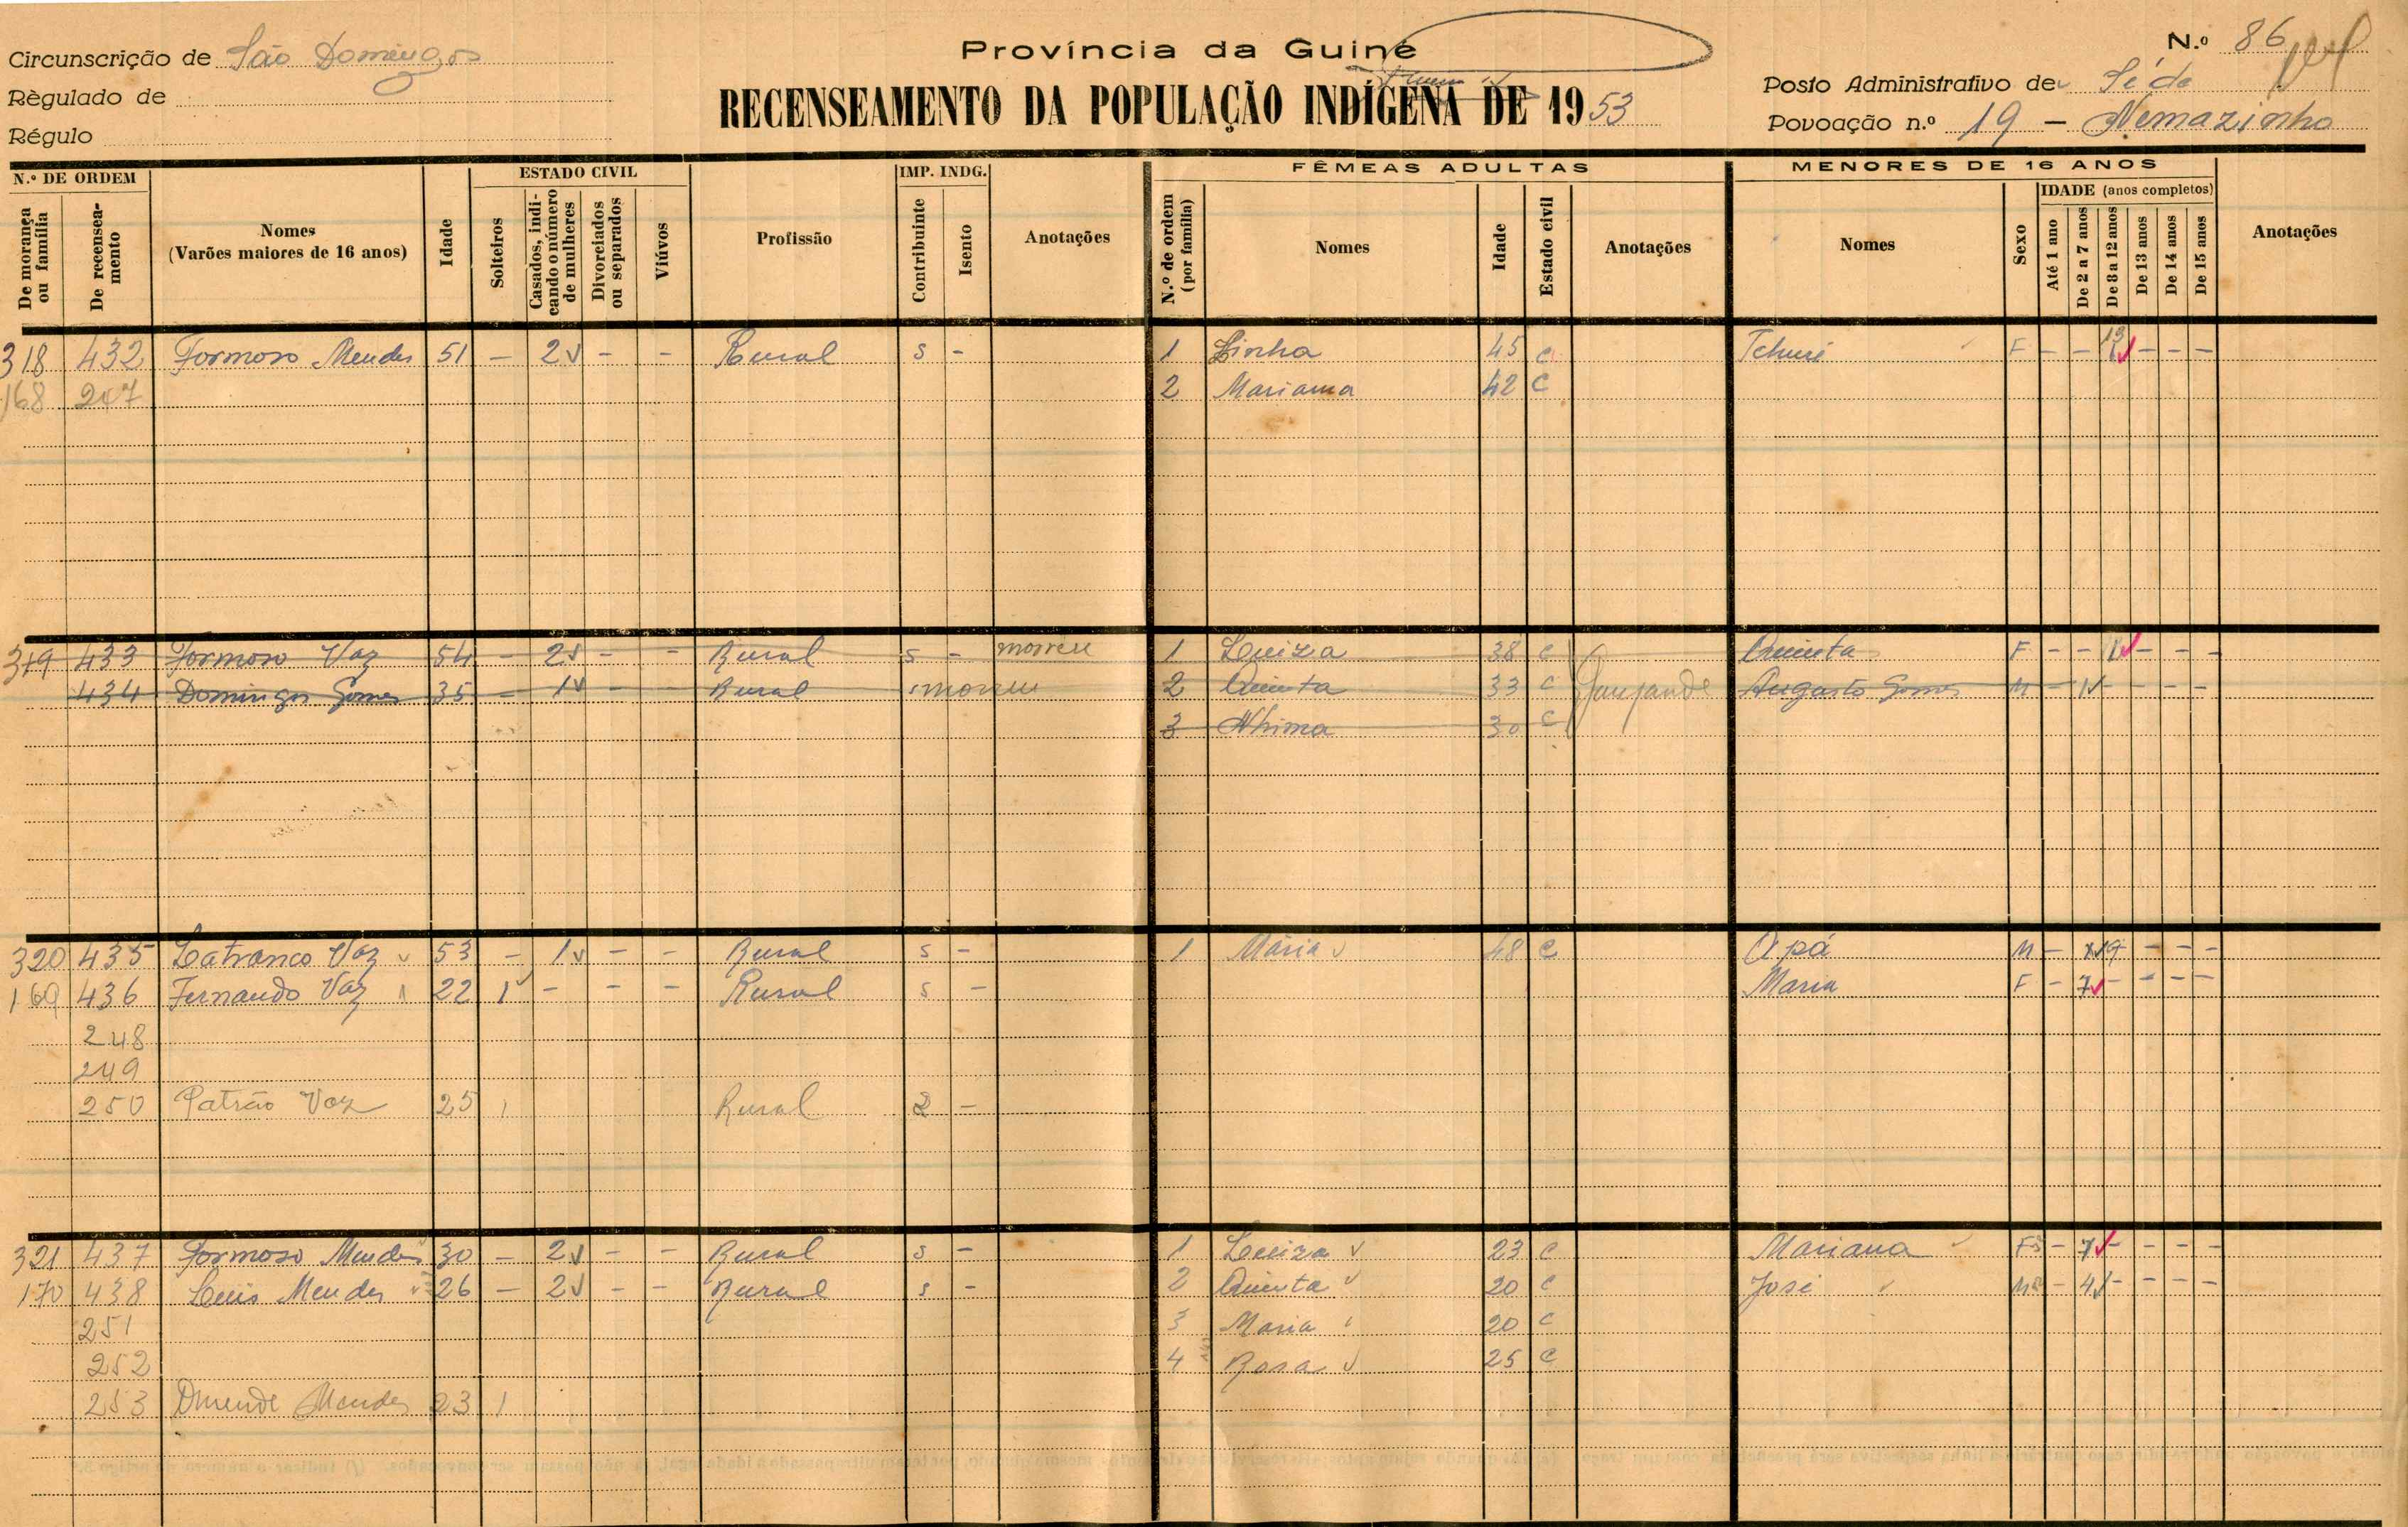 Circunscrição de São Domingos
Règulado de
Régulo
Província da Guiné
RECENSEAMENTO DA POPULAÇÃO INDÍGENA DE 1953
N.º 86
Posto Administrativo de Séde
Povoação n.º 19 - Nemazinho
N.º DE ORDEM
De morança ou família
De recenseamento
Nomes
(Varões maiores de 16 anos)
Idade
ESTADO CIVIL
Solteiros
Casados, indicando o número de mulheres
Divorciados ou separados
Viúvos
Profissão
IMP. INDG.
Contribuinte
Isento
Anotações
FÊMEAS ADULTAS
N.º de ordem (por família)
Nomes
Idade
Estado civil
Anotações
MENORES DE 16 ANOS
Nomes
Sexo
IDADE (anos completos)
Até 1 ano
De 2 a 7 anos
De 8 a 12 anos
De 13 anos
De 14 anos
De 15 anos
Anotações
318 432 Formoso Mendes 51 - 2 - - Rural s - 1 Linha 45 C Tchuri F - - 13 - - -
168 247 2 Mariama 42 C
319 433 Formoso Vaz 54 - 2 - - Rural s - morreu 1 Luiza 38 C Quinta F - - 1 - - -
434 Domingos Gomes 35 - 1 - - Rural s morreu 2 Quinta 33 C Augusto Gomes M - 1 - - - -
3 Nhima 30 C
320 435 Latranco Vaz 53 - 1 - - Rural s - 1 Mária 48 C Apá M - 9 - - -
169 436 Fernando Vaz 22 1 - - - Rural s - Maria F - 7 - - - -
248
249
250 Patrão Vaz 25 1 Rural 2 -
321 437 Formoso Mendes 30 - 2 - - Rural s - 1 Luiza 23 C Mariana F - 7 - - - -
170 438 Luis Mendes 26 - 2 - - Rural s - 2 Quinta 20 C José M - 4 - - - -
251 3 Maria 20 C
252 4 Rosa 25 C
253 Mendes 23 1